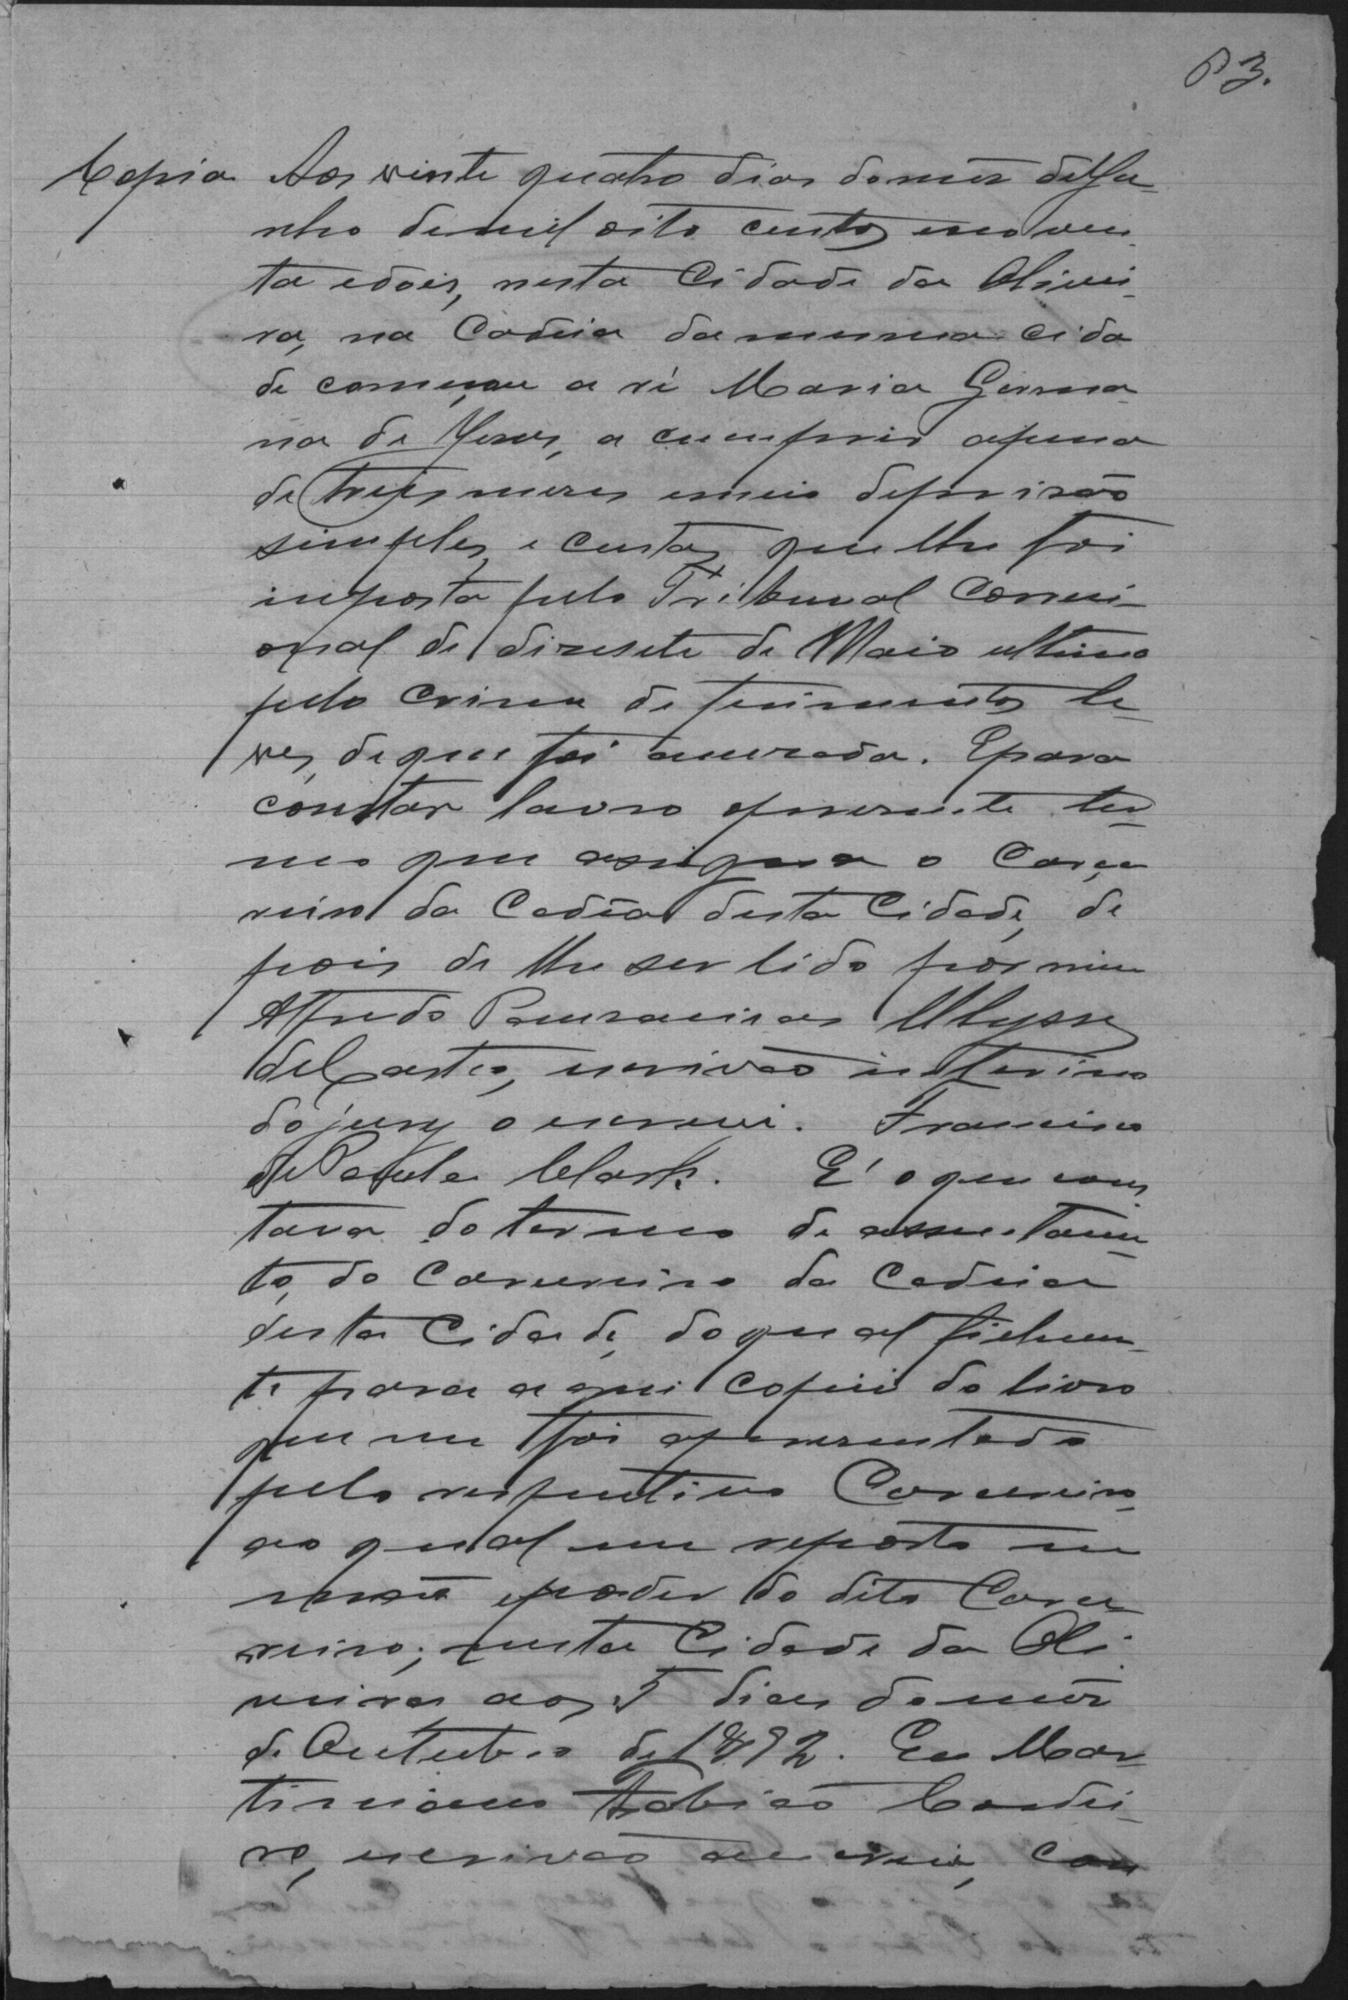 83.
Copia Aos vinte quatro dias do mez de Ju-
nho de mil oito centos e noven-
ta e dois, nesta Cidade da Olivei-
ra, na Cadeia da mesma cida
de começou a ré Maria Germa-
na de Jesus, a cumprir a pena
de trez mezes e meio de prisão
simples, e custas que lhe foi
imposta pelo Tribunal Correci-
onal de dizesete de Maio ultimo
pelo crime de ferimentos le-
ves, de que foi accusada. E para
constar lavro o presente ter-
mo que assigna o Carce
reiro da Cadêa desta Cidade, de
pois de lhe ser lido por mim
Alfredo Pausanias Ulysses
de Castro, escrivão interino
do jury o escrevi. Francisco
de Paula Clark. E' o que cons
tava do termo de assentamen-
to, do Carcereiro da Cadeia
desta Cidade, do qual fielmen-
te para aqui copiei do livro
que me foi apresentado
pelo respectivo Carcereiro,
ao qual me reporto em
mão e poder do dito Carce-
reiro; nesta Cidade da Oli-
veira aos 5 dias do mez
de Outubro de 1892. Eu Mar-
tiniano Cordei-
ro, escrivão que escrevi, con